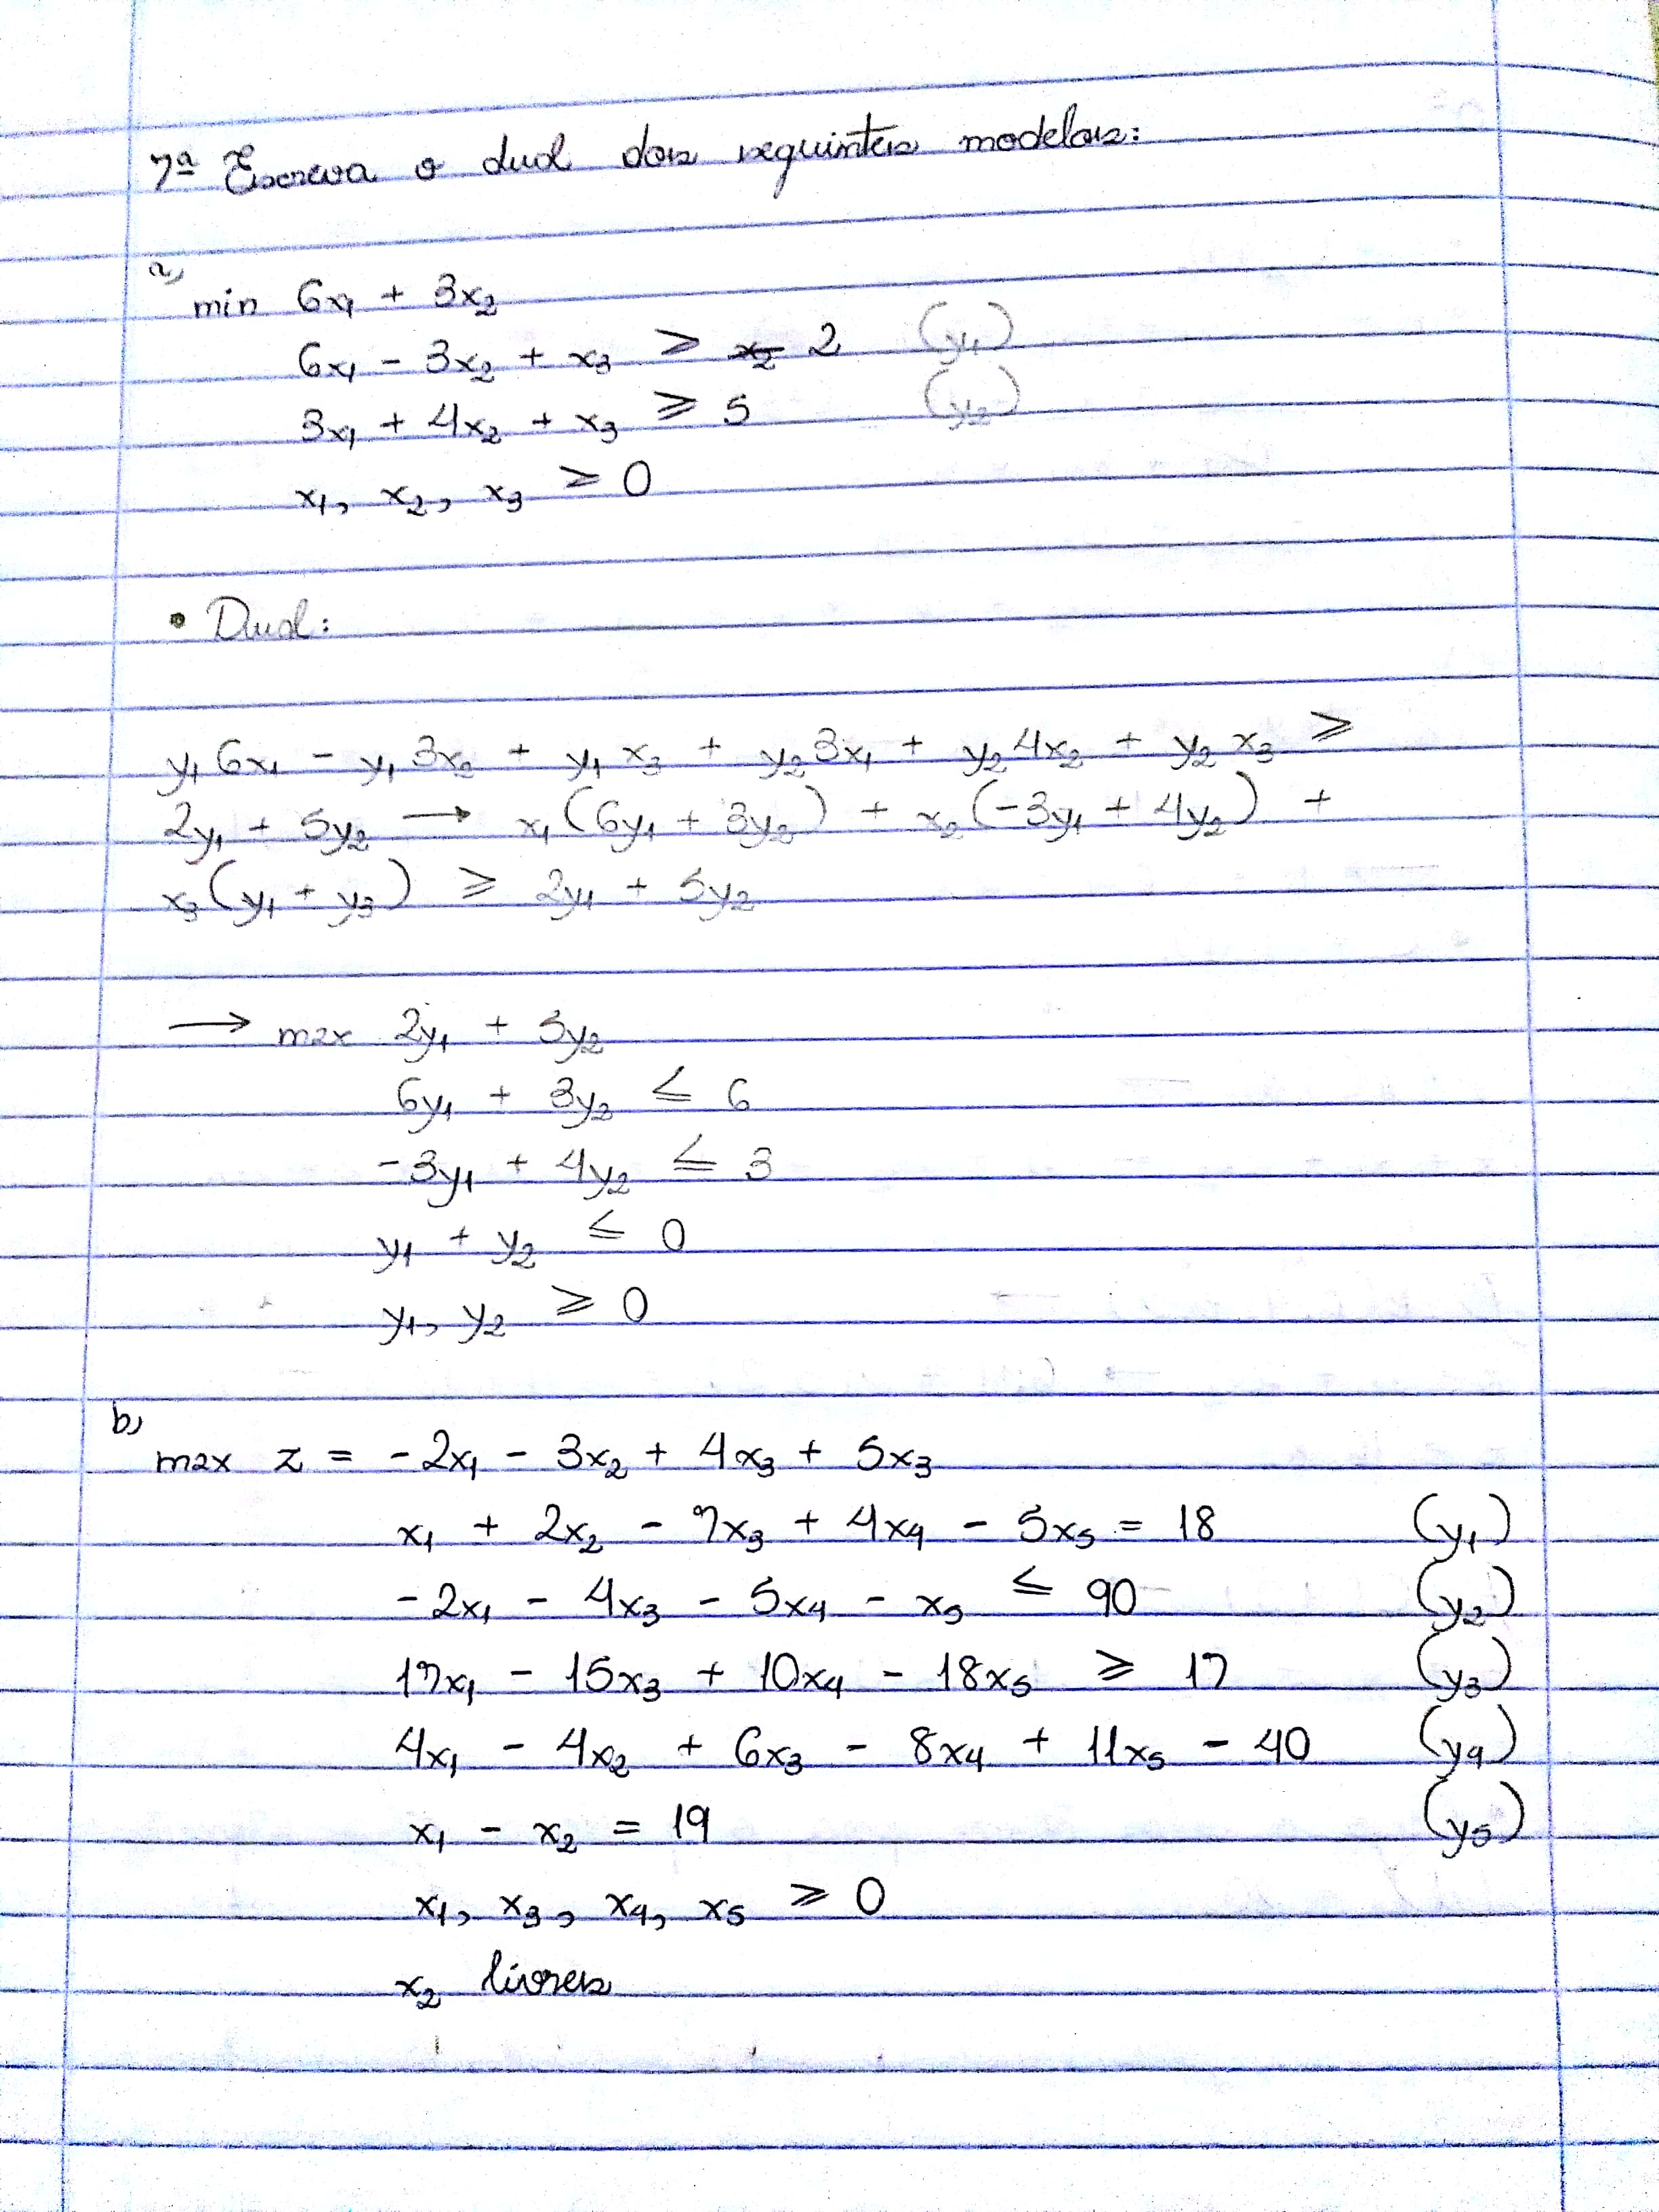 7ª Escreva o dual dos seguintes modelos:
a) min 6x₁ + 3x₂
6x₁ - 3x₂ + x₃ ≥ ~~x₂~~ 2 (y₁)
3x₁ + 4x₂ + x₃ ≥ 5 (y₂)
x₁, x₂, x₃ ≥ 0
• Dual:
y₁6x₁ - y₁3x₂ + y₁x₃ + y₂3x₁ + y₂4x₂ + y₂x₃ ≥
2y₁ + 5y₂ → x₁(6y₁ + 3y₂) + x₂(-3y₁ + 4y₂) +
x₃(y₁ + y₃) ≥ 2y₁ + 5y₂
→ max 2y₁ + 5y₂
6y₁ + 3y₂ ≤ 6
-3y₁ + 4y₂ ≤ 3
y₁ + y₂ ≤ 0
y₁, y₂ ≥ 0
b) max z = -2x₁ - 3x₂ + 4x₃ + 5x₃
x₁ + 2x₂ - 7x₃ + 4x₄ - 5x₅ = 18 (y₁)
-2x₁ - 4x₃ - 5x₄ - x₅ ≤ 90 (y₂)
17x₁ - 15x₃ + 10x₄ - 18x₅ ≥ 17 (y₃)
4x₁ - 4x₂ + 6x₃ - 8x₄ + 11x₅ - 40 (y₄)
x₁ - x₂ = 19 (y₅)
x₁, x₃, x₄, x₅ ≥ 0
x₂ livres